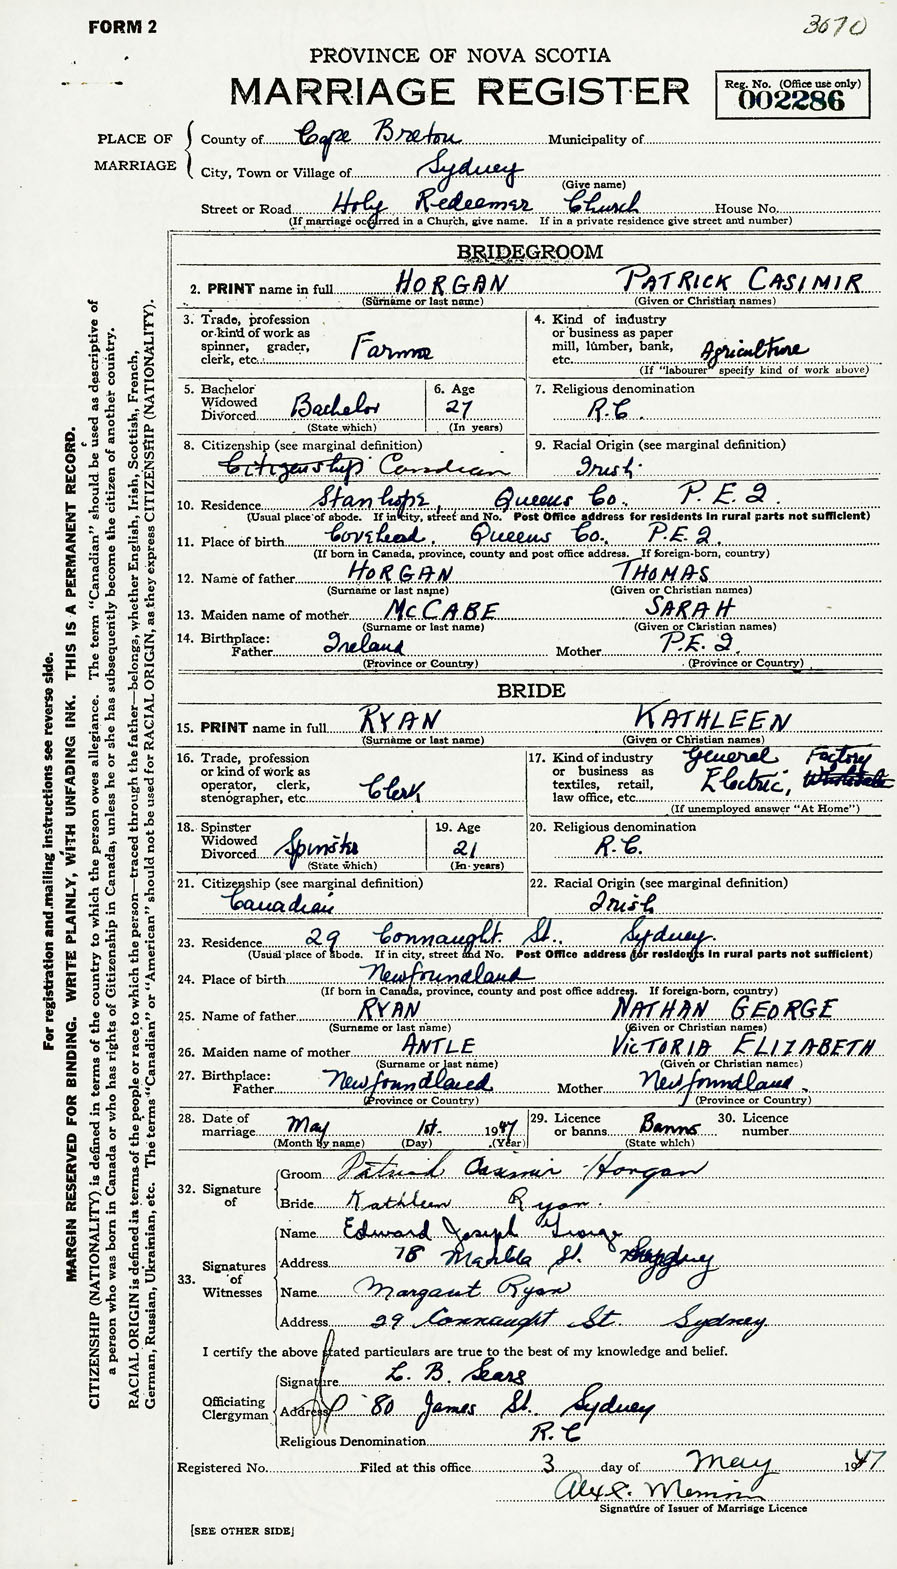 FORM 2
3670
PROVINCE OF NOVA SCOTIA
MARRIAGE REGISTER
Reg. No. (Office use only)
002286
PLACE OF MARRIAGE
County of Cape Breton Municipality of
City, Town or Village of Sydney
(Give name)
Street or Road Holy Redeemer Church House No.
(If marriage occurred in a Church, give name. If in a private residence give street and number)
BRIDEGROOM
2. PRINT name in full HORGAN PATRICK CASIMIR
(Surname or last name) (Given or Christian names)
3. Trade, profession or kind of work as spinner, grader, clerk, etc. Farmer
4. Kind of industry or business as paper mill, lumber, bank, etc. Agriculture
(If "labourer" specify kind of work above)
5. Bachelor Widowed Divorced Bachelor
(State which)
6. Age 27
(In years)
7. Religious denomination R.C.
8. Citizenship (see marginal definition)
Citizenship Canadian
9. Racial Origin (see marginal definition)
Irish
10. Residence Stanhope, Queens Co., P.E.I.
(Usual place of abode. If in city, street and No. Post Office address for residents in rural parts not sufficient)
11. Place of birth Covehead, Queens Co., P.E.I.
(If born in Canada, province, county and post office address. If foreign-born, country)
12. Name of father HORGAN THOMAS
(Surname or last name) (Given or Christian names)
13. Maiden name of mother McCABE SARAH
(Surname or last name) (Given or Christian names)
14. Birthplace: Father Ireland Mother P.E.I.
(Province or Country) (Province or Country)
BRIDE
15. PRINT name in full RYAN KATHLEEN
(Surname or last name) (Given or Christian names)
16. Trade, profession or kind of work as operator, clerk, stenographer, etc. Clerk
17. Kind of industry or business as textiles, retail, law office, etc. General Electric, Factory
(If unemployed answer "At Home")
18. Spinster Widowed Divorced Spinster
(State which)
19. Age 21
(In years)
20. Religious denomination R.C.
21. Citizenship (see marginal definition)
Canadian
22. Racial Origin (see marginal definition)
Irish
23. Residence 29 Connaught St., Sydney.
(Usual place of abode. If in city, street and No. Post Office address for residents in rural parts not sufficient)
24. Place of birth Newfoundland
(If born in Canada, province, county and post office address. If foreign-born, country)
25. Name of father RYAN NATHAN GEORGE
(Surname or last name) (Given or Christian names)
26. Maiden name of mother ANTLE VICTORIA ELIZABETH
(Surname or last name) (Given or Christian names)
27. Birthplace: Father Newfoundland Mother Newfoundland
(Province or Country) (Province or Country)
28. Date of marriage May 1st. 1947
(Month by name) (Day) (Year)
29. Licence or banns Banns
(State which)
30. Licence number
32. Signature of
Groom Patrick Casimir Horgan
Bride Kathleen Ryan.
33. Signatures of Witnesses
Name Edward Joseph George
Address 78 St. Sydney
Name Margaret Ryan
Address 29 Connaught St. Sydney
I certify the above stated particulars are true to the best of my knowledge and belief.
Officiating Clergyman
Signature L. B. Sears
Address 80 James St. Sydney
Religious Denomination R.C
Registered No. Filed at this office 3 day of May 1947
Signature of Issuer of Marriage Licence
[SEE OTHER SIDE]
For registration and mailing instructions see reverse side.
MARGIN RESERVED FOR BINDING. WRITE PLAINLY, WITH UNFADING INK. THIS IS A PERMANENT RECORD.
CITIZENSHIP (NATIONALITY) is defined in terms of the country to which the person owes allegiance. The term "Canadian" should be used as descriptive of
a person who was born in Canada or who has rights of Citizenship in Canada, unless he or she has subsequently become the citizen of another country.
RACIAL ORIGIN is defined in terms of the people or race to which the person—traced through the father—belongs, whether English, Irish, Scottish, French,
German, Russian, Ukrainian, etc. The terms "Canadian" or "American" should not be used for RACIAL ORIGIN, as they express CITIZENSHIP (NATIONALITY).